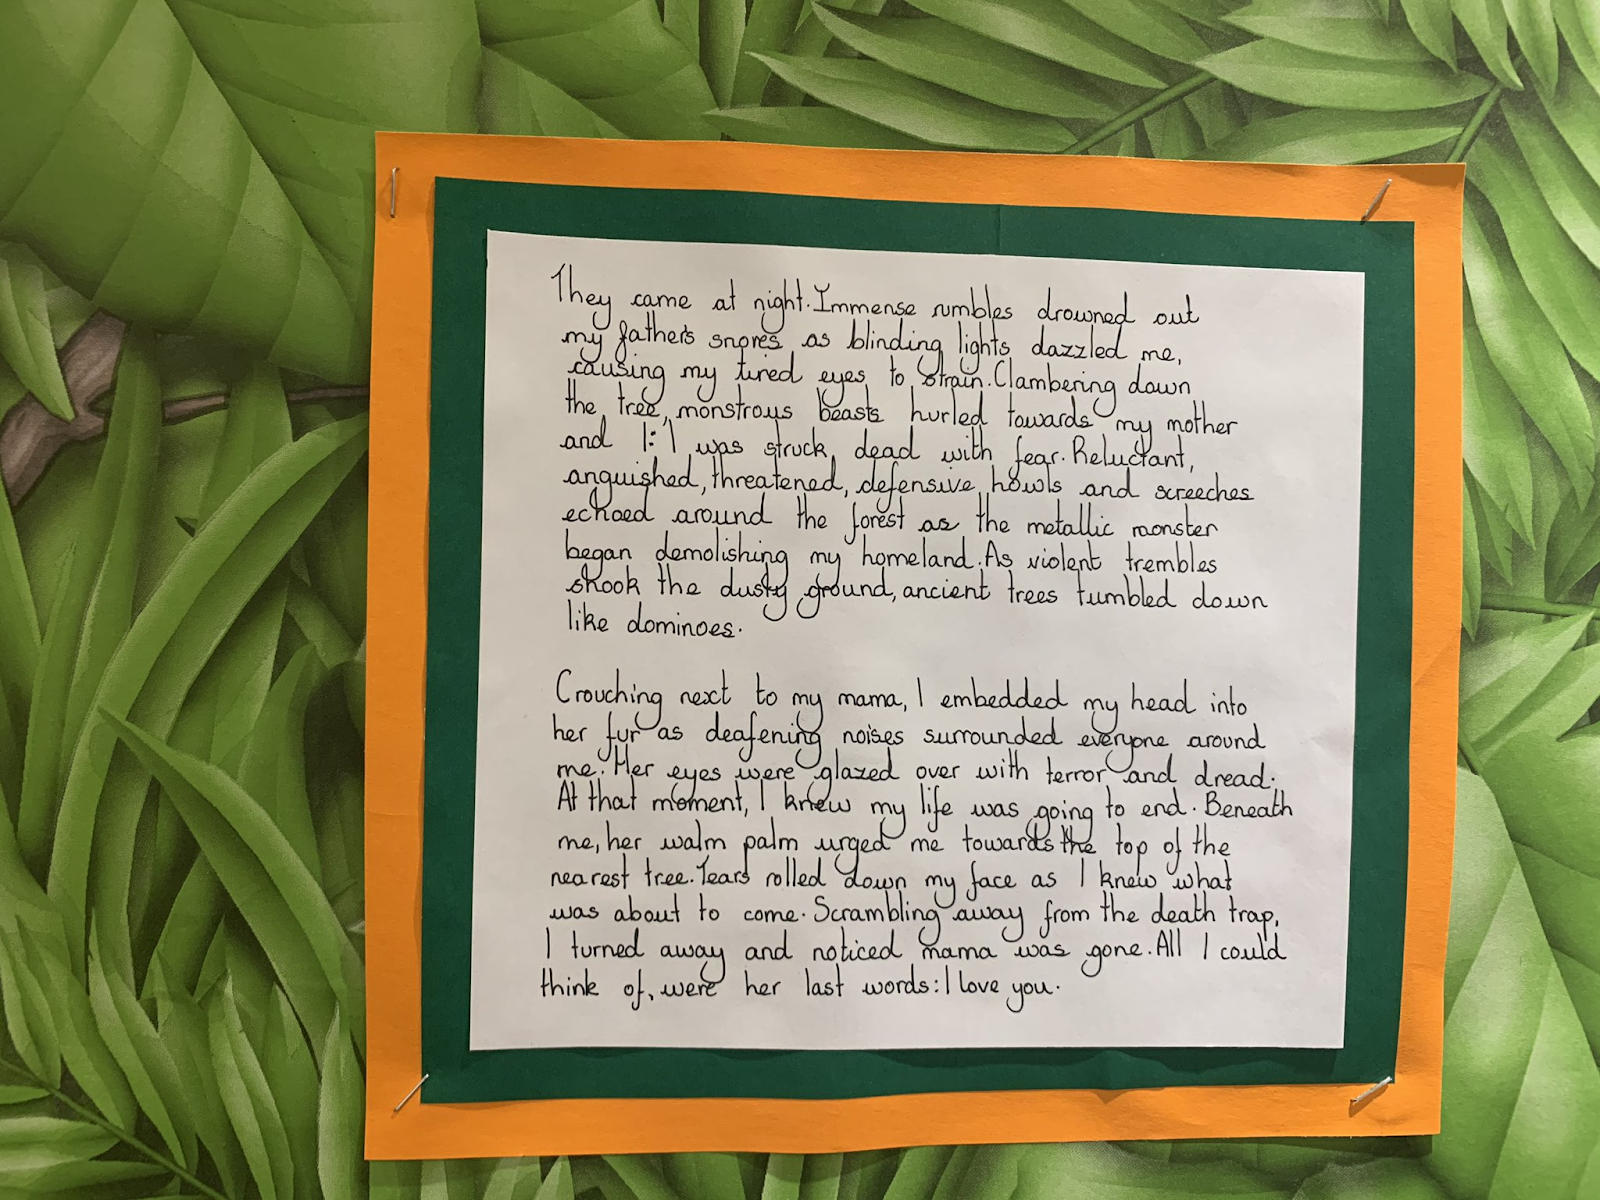 They came at night. Immense rumbles drowned out
my father's snores as blinding lights dazzled me,
causing my tired eyes to strain. Clambering down
the tree, monstrous beasts hurled towards my mother
and I: I was struck dead with fear. Reluctant,
anguished, threatened, defensive howls and screeches
echoed around the forest as the metallic monster
began demolishing my homeland. As violent trembles
shook the dusty ground, ancient trees tumbled down
like dominoes.

Crouching next to my mama, I embedded my head into
her fur as deafening noises surrounded everyone around
me. Her eyes were glazed over with terror and dread.
At that moment, I knew my life was going to end. Beneath
me, her walm palm urged me towards the top of the
nearest tree. Tears rolled down my face as I knew what
was about to come. Scrambling away from the death trap,
I turned away and noticed mama was gone. All I could
think of, were her last words: I love you.